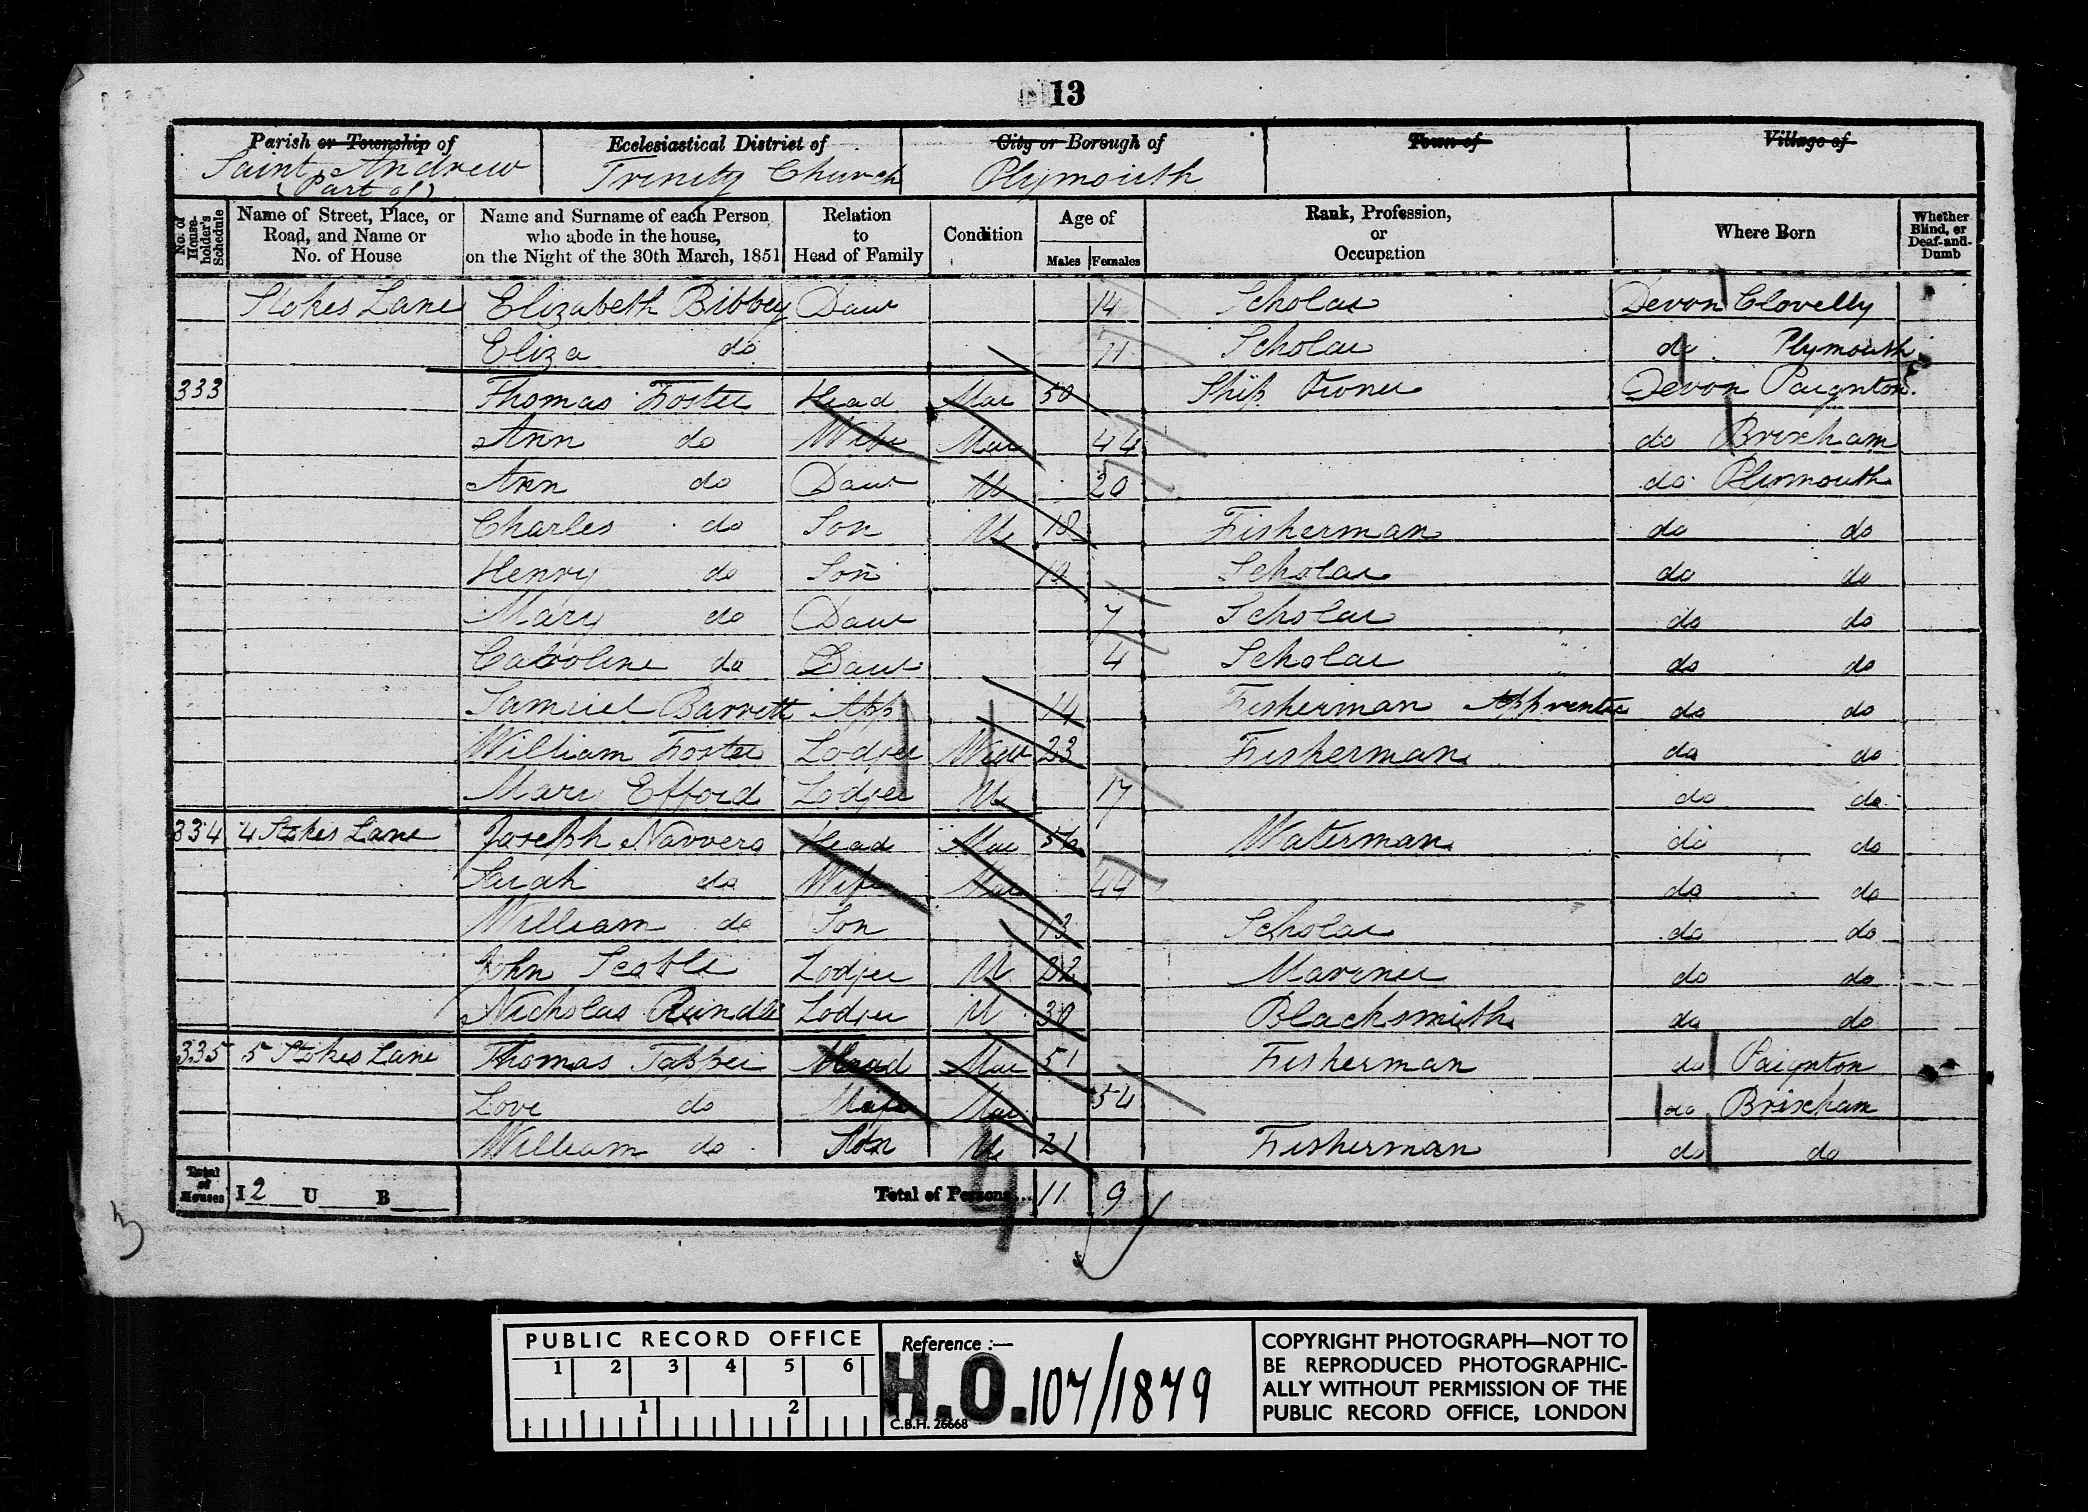 13
Parish or Township of Ecclesiastical District of City or Borough of Town of Village of
Saint Andrew Trinity Church Plymouth
(Part of)
No. of House-holder's Schedule Name of Street, Place, or Road, and Name or No. of House Name and Surname of each Person who abode in the house, on the Night of the 30th March, 1851 Relation to Head of Family Condition Age of Males Females Rank, Profession, or Occupation Where Born Whether Blind, or Deaf-and-Dumb
Stokes Lane Elizabeth Bibbey Daur 14 Scholar Devon Clovelly
Eliza do 11 Scholar do Plymouth
333 Thomas Foster Head Mar 50 Ship Owner Devon Paignton
Ann do Wife Mar 44 do Brixham
Ann do Daur U 20 do Plymouth
Charles do Son U 18 Fisherman do do
Henry do Son Scholar do do
Mary do Daur 7 Scholar do do
Caroline do Daur 4 Scholar do do
Samuel Barrett App 14 Fisherman Apprentice do do
William Foster Lodger Widr 23 Fisherman do do
Mary Efford Lodger U 17 do do
334 4 Stokes Lane Joseph Navvers Head Mar Waterman do do
Sarah do Wife Mar 44 do do
William do Son 13 Scholar do do
John Lodger U 22 Mariner do do
Nicholas Rundle Lodger U 30 Blacksmith do do
335 5 Stokes Lane Thomas Tapper Head Mar 51 Fisherman do Paignton
Love do Wife Mar 54 do Brixham
William do Son U 21 Fisherman do do
Total of Houses I 2 U B Total of Persons... 11 9
PUBLIC RECORD OFFICE
1 2 3 4 5 6
1 2
Reference :—
H.O. 107/1879
C.B.H. 26668
COPYRIGHT PHOTOGRAPH—NOT TO
BE REPRODUCED PHOTOGRAPHIC-
ALLY WITHOUT PERMISSION OF THE
PUBLIC RECORD OFFICE, LONDON